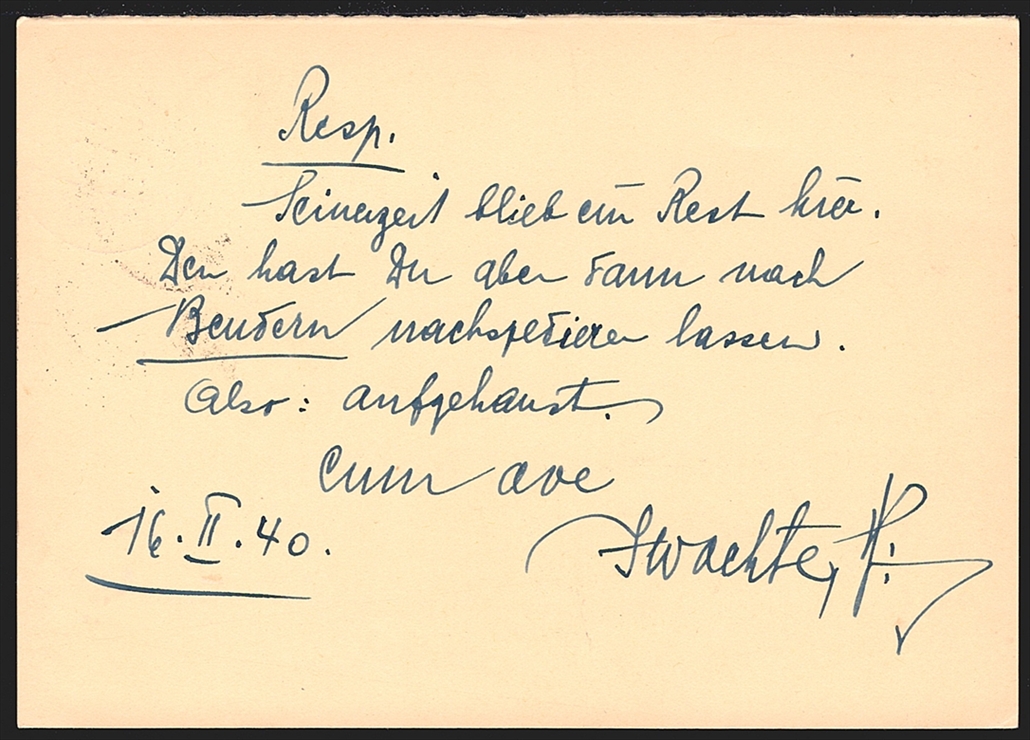 Resp.
Seinerzeit blieb ein Rest hier.
Den hast Du aber dann nach
Bendern nachspedieren lassen.
Also: aufgehaust.
Cum ave
16. II. 40.